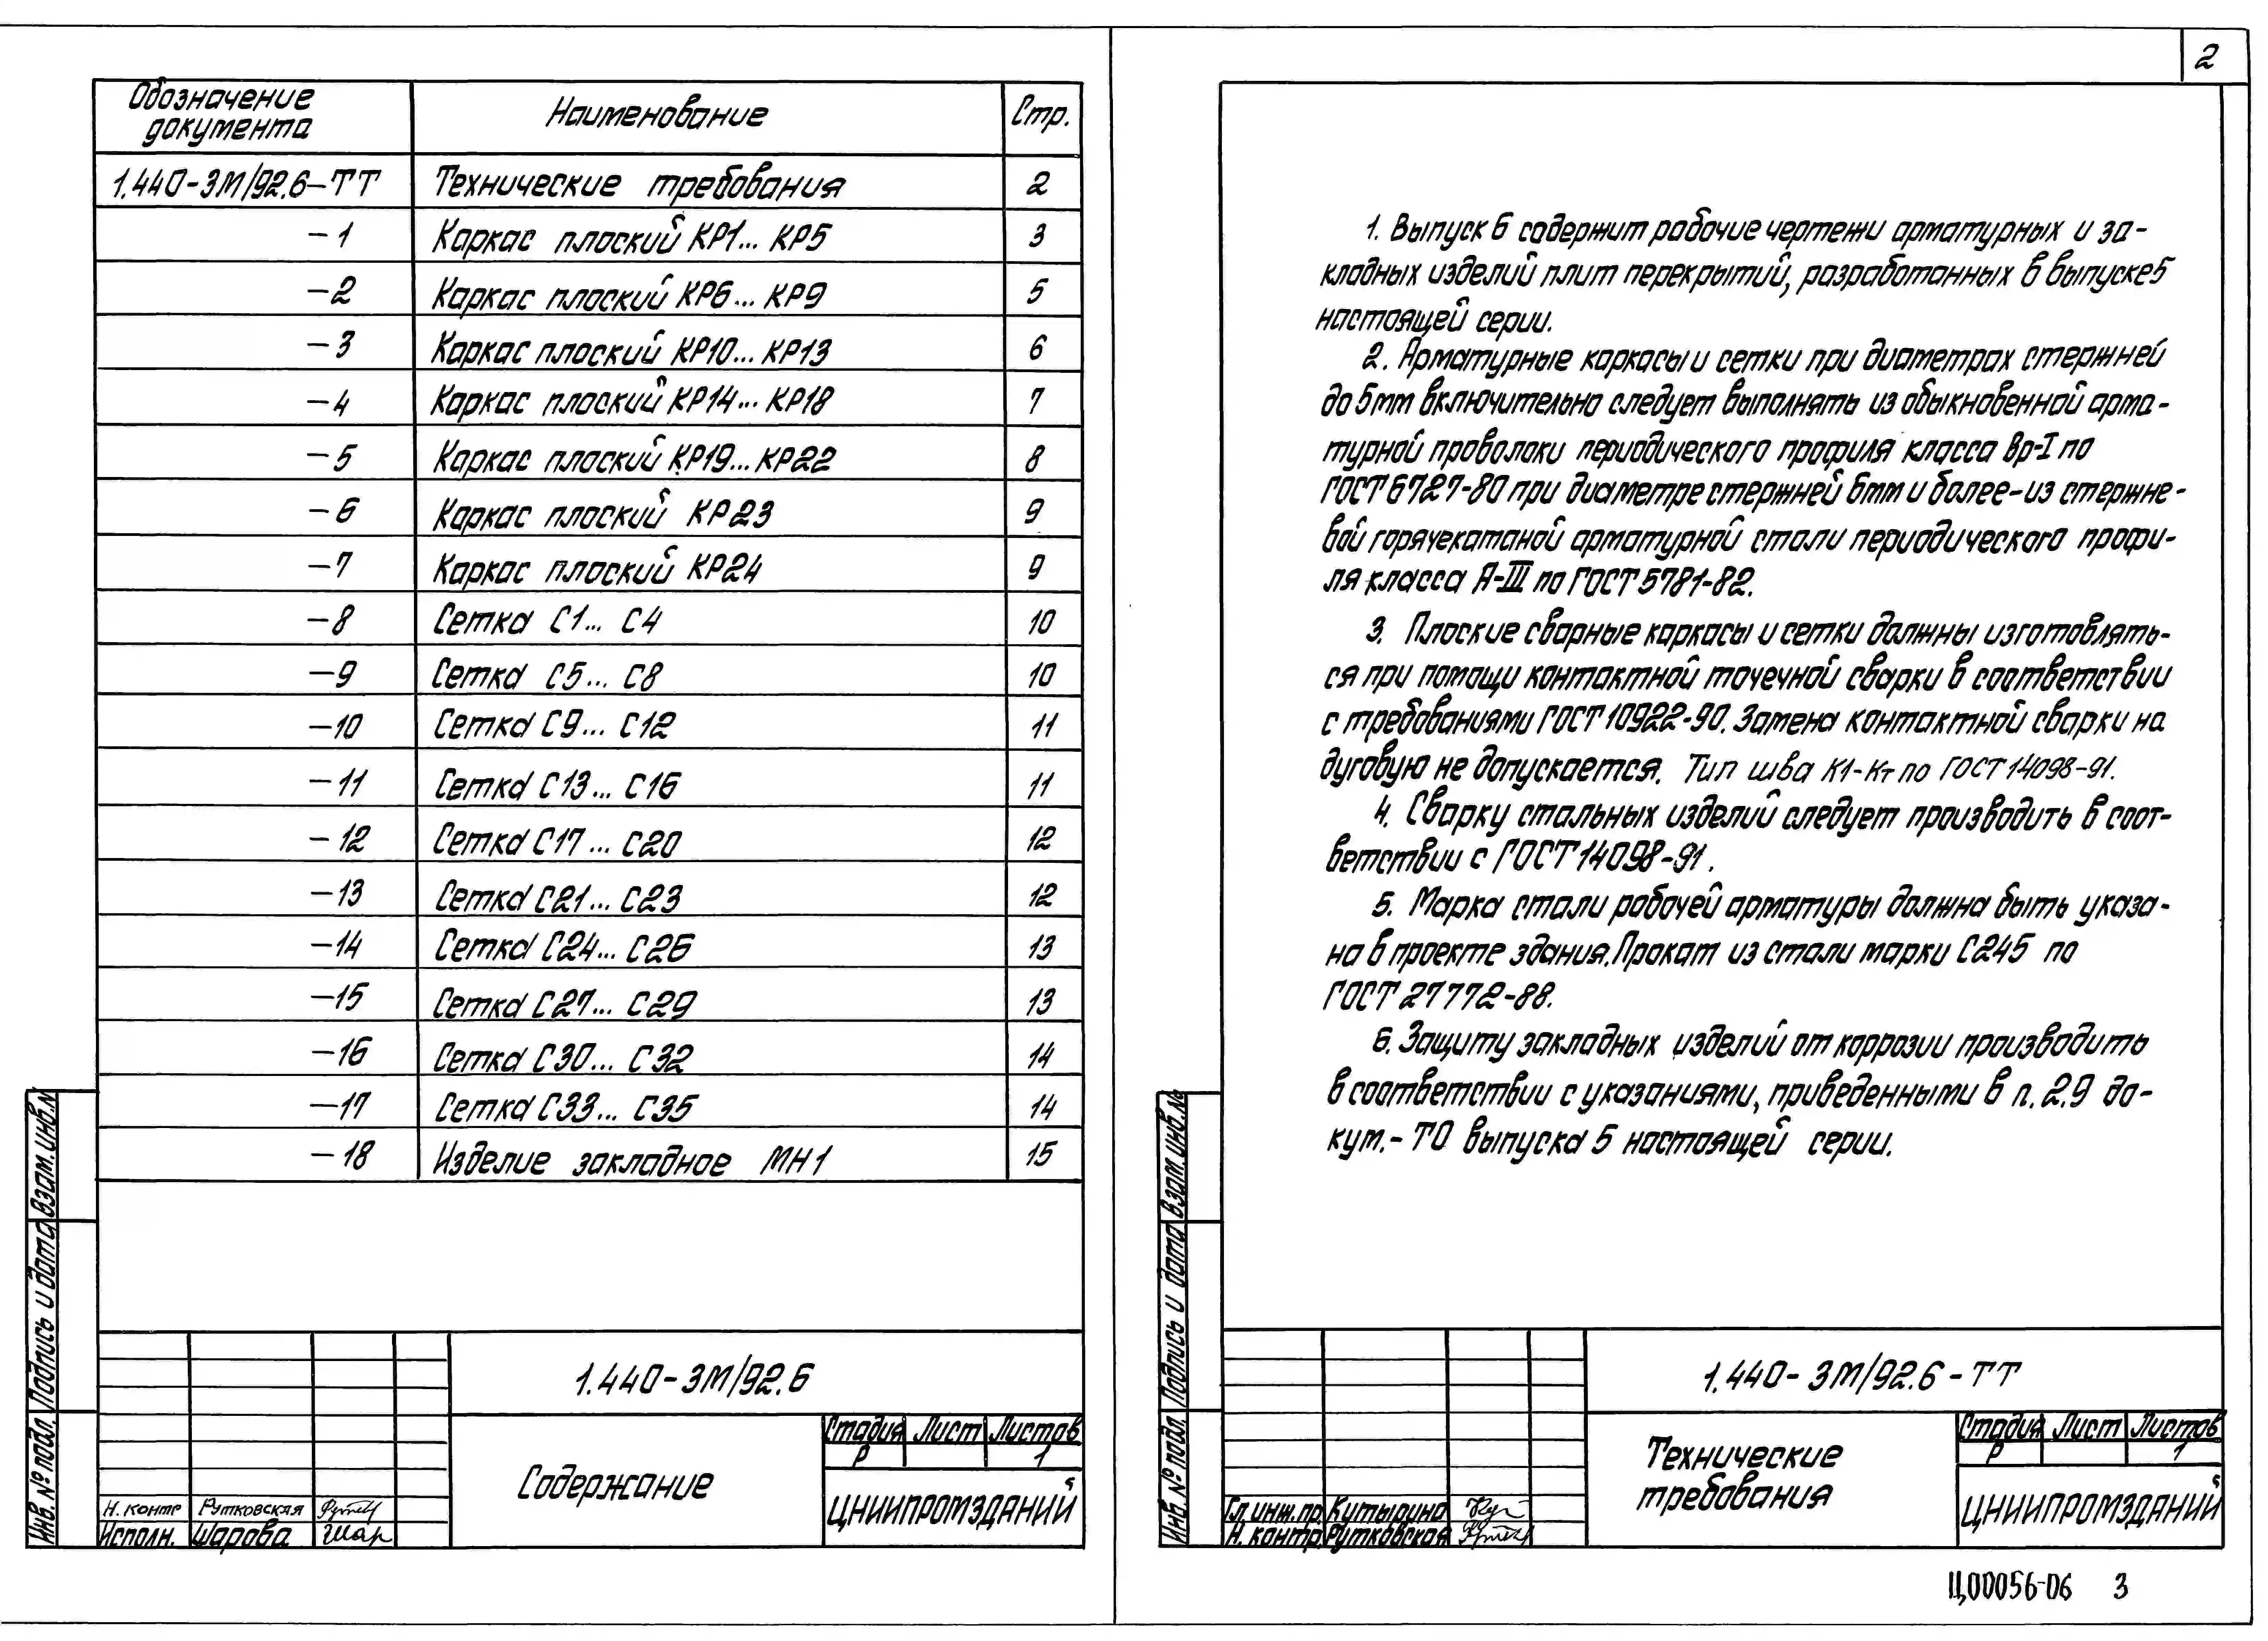 Обозначение документа Наименование Стр.
1.440-3М/92.6-ТТ Технические требования 2
-1 Каркас плоский КР1... КР5 3
-2 Каркас плоский КР6... КР9 5
-3 Каркас плоский КР10... КР13 6
-4 Каркас плоский КР14... КР18 7
-5 Каркас плоский КР19... КР22 8
-6 Каркас плоский КР23 9
-7 Каркас плоский КР24 9
-8 Сетка С1... С4 10
-9 Сетка С5... С8 10
-10 Сетка С9... С12 11
-11 Сетка С13... С16 11
-12 Сетка С17... С20 12
-13 Сетка С21... С23 12
-14 Сетка С24... С26 13
-15 Сетка С27... С29 13
-16 Сетка С30... С32 14
-17 Сетка С33... С35 14
-18 Изделие закладное МН1 15
Взам. инв. №
Подпись и дата
Инв. № подл.
1.440-3М/92.6
Содержание
Стадия Лист Листов
Р 1
ЦНИИПРОМЗДАНИЙ
Н. контр Рутковская
Исполн. Шарова Шар
2
1. Выпуск 6 содержит рабочие чертежи арматурных и за-
кладных изделий плит перекрытий, разработанных в выпуске 5
настоящей серии.
2. Арматурные каркасы и сетки при диаметрах стержней
до 5мм включительно следует выполнять из обыкновенной арма-
турной проволоки периодического профиля класса Вр-I по
ГОСТ 6727-80 при диаметре стержней 6мм и более-из стержне-
вой горячекатаной арматурной стали периодического профи-
ля класса А-III по ГОСТ 5781-82.
3. Плоские сварные каркасы и сетки должны изготовлять-
ся при помощи контактной точечной сварки в соответствии
с требованиями ГОСТ 10922-90. Замена контактной сварки на
дуговую не допускается. Тип шва К1-Кт по ГОСТ 14098-91.
4. Сварку стальных изделий следует производить в соот-
ветствии с ГОСТ 14098-91.
5. Марка стали рабочей арматуры должна быть указа-
на в проекте здания. Прокат из стали марки С245 по
ГОСТ 27772-88.
6. Защиту закладных изделий от коррозии производить
в соответствии с указаниями, приведенными в п. 2.9 до-
кум.- ТО выпуска 5 настоящей серии.
Взам. инв. №
Подпись и дата
Инв. № подл.
1.440-3М/92.6-ТТ
Технические
требования
Стадия Лист Листов
Р 1
ЦНИИПРОМЗДАНИЙ
Гл. инж. пр. Кутырина
Н. контр. Рутковская
Ц00056-06 3